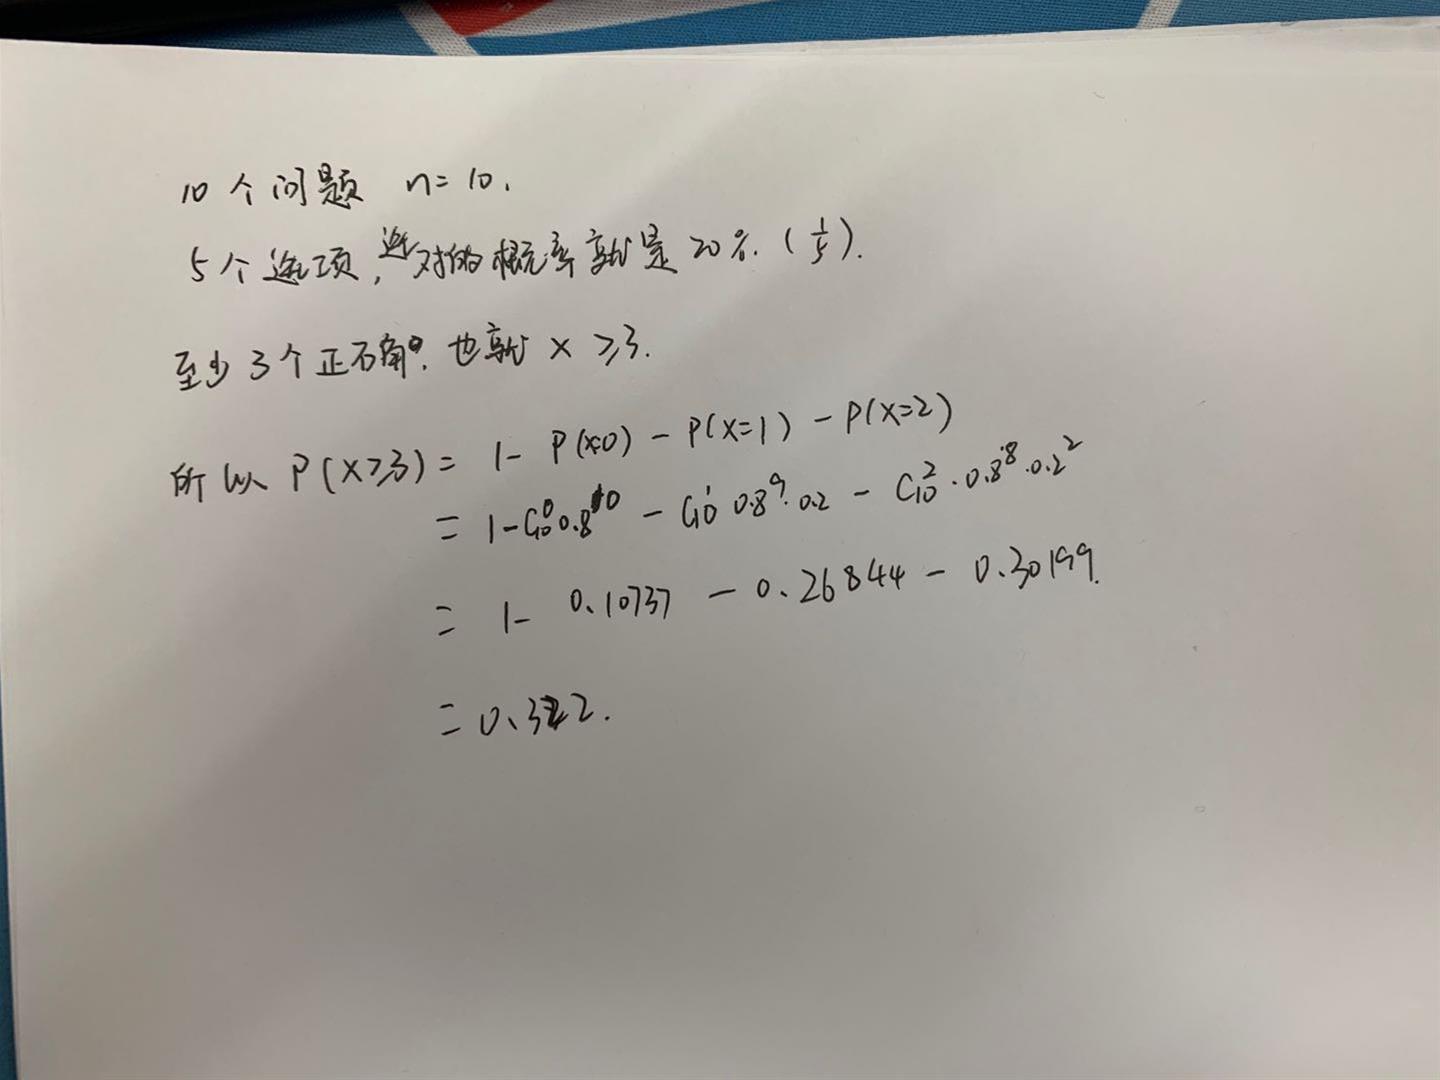 10个问题 n=10.
5个选项,选对的概率就是20%.(1/5).
至少3个正确.也就 x≥3.
所以 P(X≥3) = 1- P(x=0) - P(X=1) - P(X=2)
= 1-C₁₀⁰0.8¹⁰ - C₁₀¹ 0.8⁹·0.2 - C₁₀²·0.8⁸·0.2²
= 1- 0.10737 - 0.26844 - 0.30199.
=0.322.